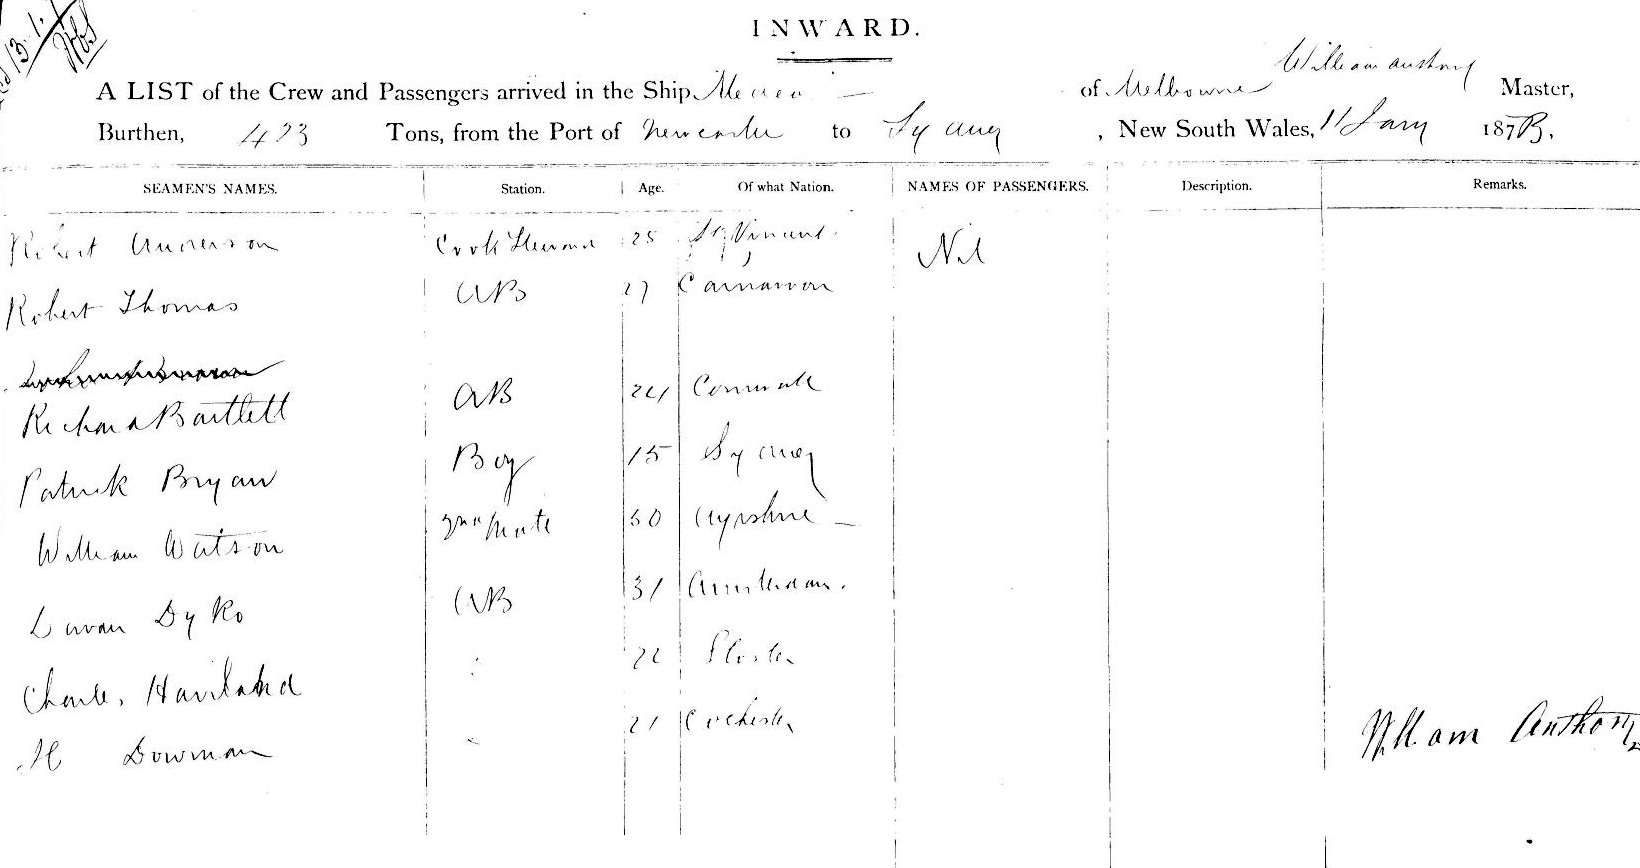 INWARD.
A LIST of the Crew and Passengers arrived in the Ship of Melbourne William Anthony Master,
Burthen, 423 Tons, from the Port of Newcastle to Sydney, New South Wales, 11 Jany 187
SEAMEN'S NAMES. Station. Age. Of what Nation. NAMES OF PASSENGERS. Description. Remarks.
Robert Anderson Cook Steward 25 St Vincent. Nil
Robert Thomas AB 27 Carnarvon
Richard Bartlett AB 24 Cornwall
Patrick Bryan Boy 15 Sydney
William Watson 2nd Mate 30 Ayrshire
Dyko AB 31 Amsterdam.
Charles Haviland 22 Gloster
H Dowman 21 Colchester
William Anthony